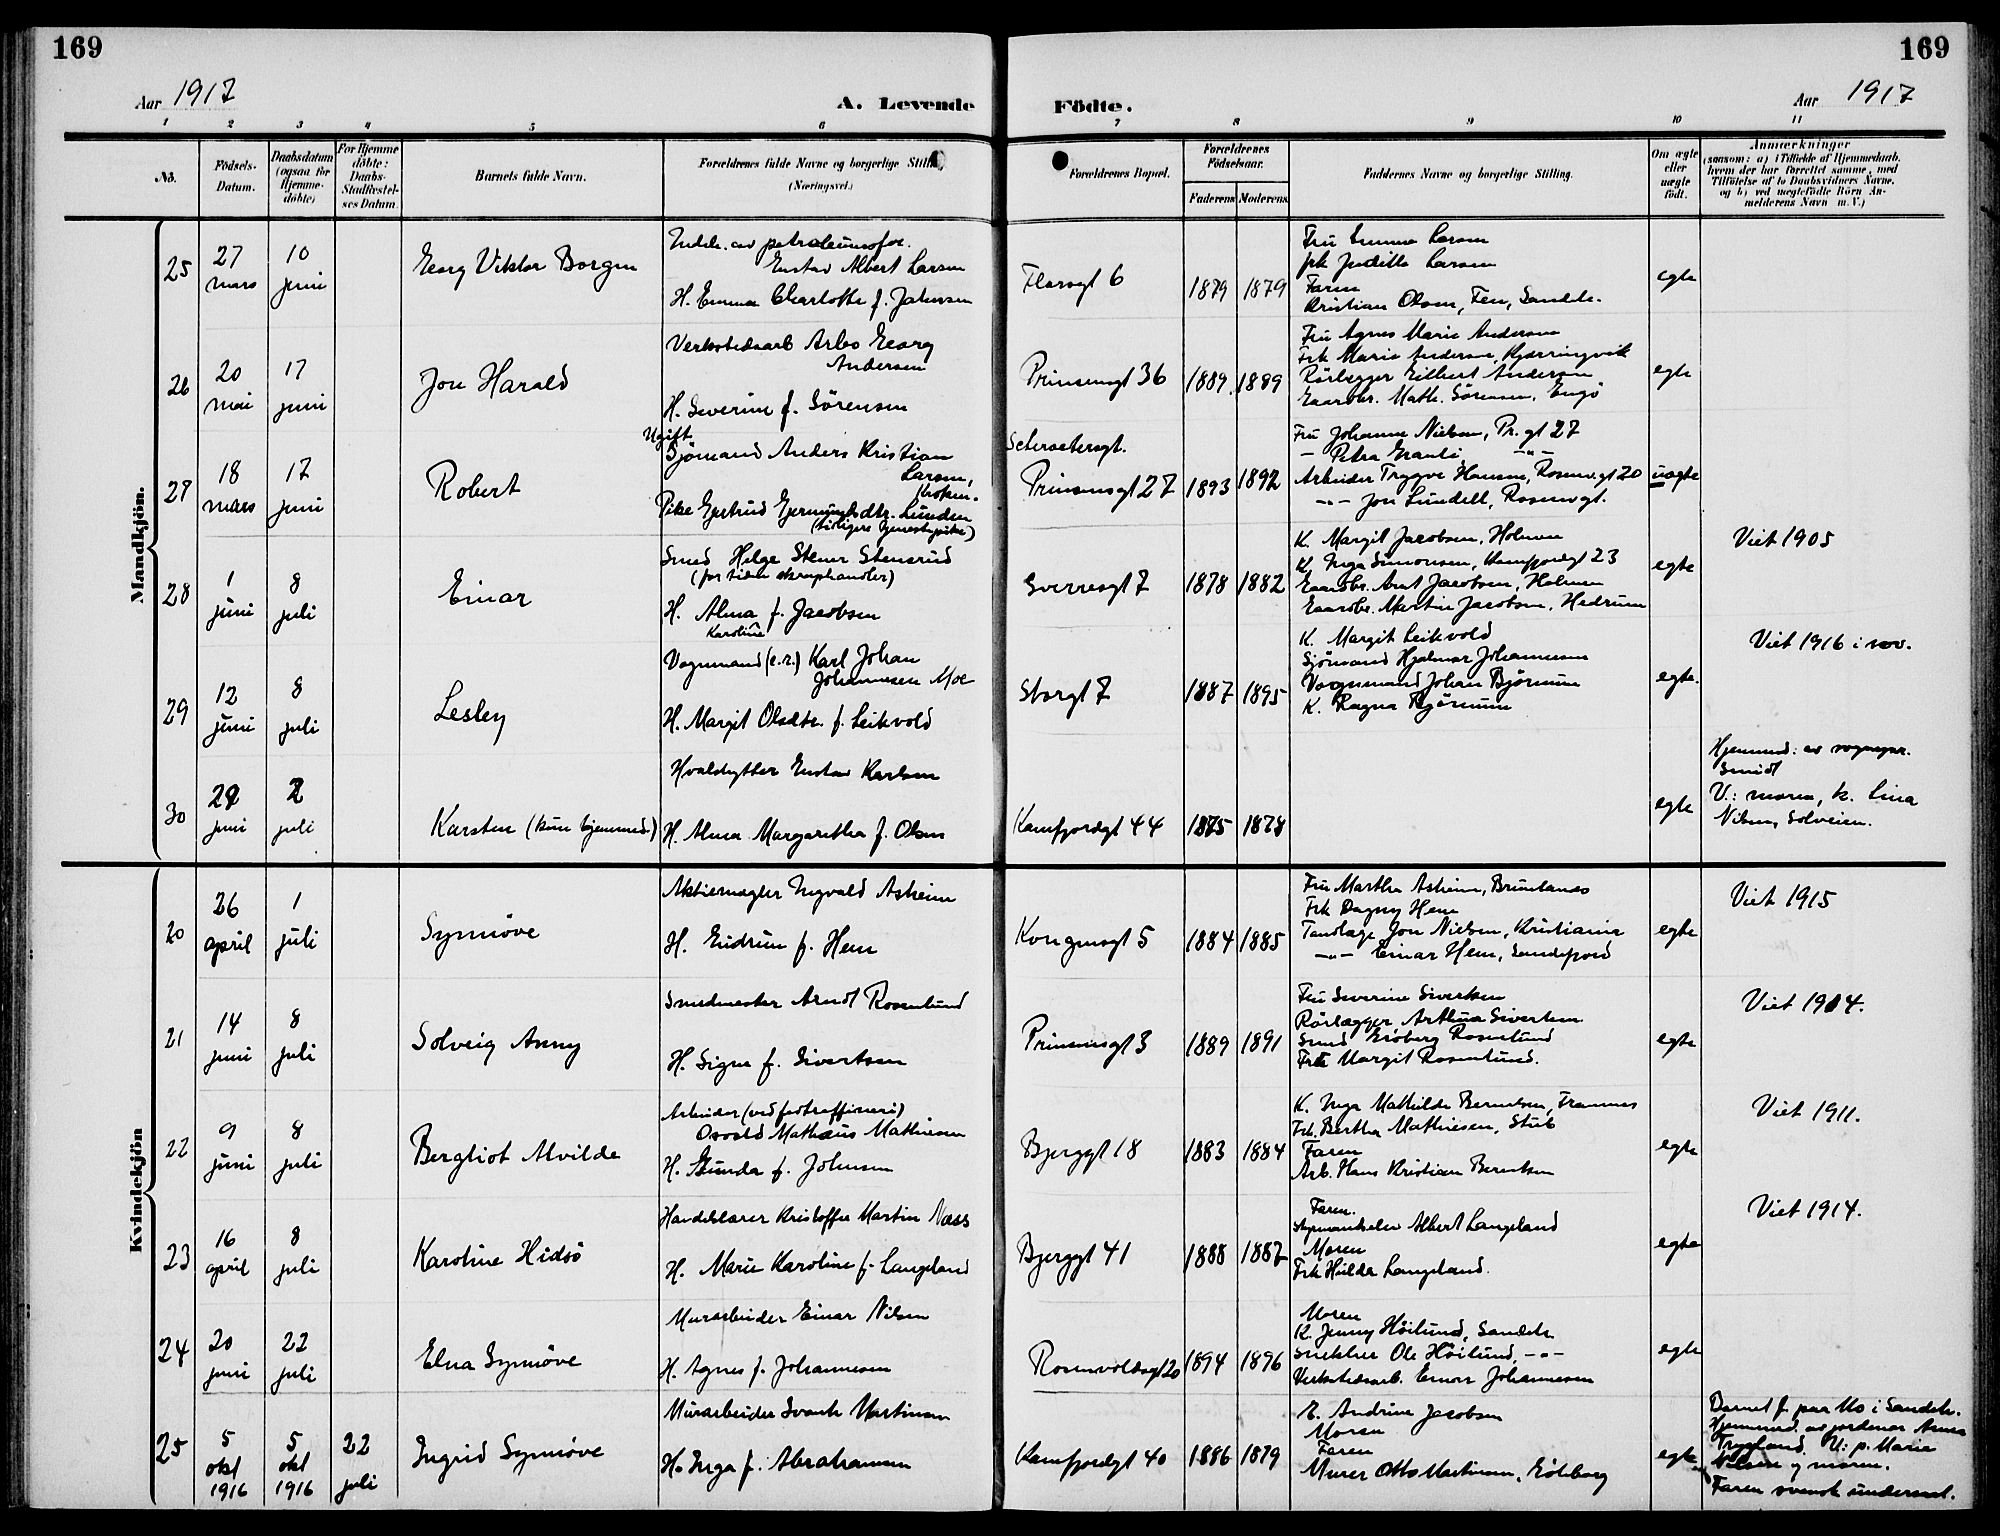 169
169
Aar 1917
A. Levende
Födte.
Aar 1917
1 2 3 4 5 6 7 8 9 10 11
No.
Födsels-Datum.
Daabsdatum (ogsaa for Hjemme-döbte)
For Hjemme döbte: Daabs-Stadfæstel-ses Datum.
Barnets fulde Navn.
Forældrenes fulde Navne og borgerlige Stilling (Næringsvei.)
Forældrenes Bopæl.
Forældrenes Födselsaar.
Faderens Moderens
Faddernes Navne og borgerlige Stilling.
Om ægte eller uægte födt.
Anmærkninger
(saasom: a) i Tilfælde af Hjemmedaab, hvem der har forrettet samme, med Tilföielse af to Daabsvidners Navne, og b) ved uægtefödte Börn Anmelderens Navn m. V.)
Mandkjön.
25
27 mars
10 juni
Georg Viktor Borgen
Gustav Albert Larsen
H. Emma Charlotte f. Johnsen
6
1879 1879
Fru Emma Larsen
frk Larsen
Faren
Kristian Olsen, Sandeh.
egte
26
20 mai
17 juni
Jon Harald
Verkstedsarb Arbo Georg
Andersen
H. Severine f. Sörensen
Prinsensgt 36
1889. 1889
Fru Agnes Marie Andersen
Frk Marie Andersen, Kjærringvik
Rörlegger Eilbert Andersen
Gaardbr. Math. Sörensen, Engö
egte
27
18 mars
17 juni
Robert
Ugift
Sjömand Anders Kristian
Larsen,
Pike Gjertrud Lunden
(tidligere tjenestepike)
Prinsensgt 27
1893 1892
Fru Johanne Nielsen, Pr. gt 27
— Petra —"—
Arbeider Trygve Hansen, Rosenv.gt 20
—"— Jon Lundell, Rosenv.gt.
uegte
28
1 juni
8 juli
Einar
Smed Helge Stener Stensrud
(for tiden skraphandler)
H. Alma f. Jacobsen
Karoline
Sverresgt 7
1878 1882
K. Margit Jacobsen, Holmen
K. Inga Simonsen, Kamfjordgt 23
Gaardbr. Jacobsen, Holmen
Gaardbr. Martin Jacobsen, Hedrum
egte
Viet 1905
29
12 juni
8 juli
Lesley
Vognmand (e.r.) Karl Johan
Johannesen Moe
H. Margit Olsdtr. f. Leikvold
Storgt 7
1887 1895
K. Margit Leikvold
Sjömand Hjalmar Johannesen
Vognmand Johan Bjönnum
K. Ragna Bjönnum
egte.
Viet 1916 i nov.
30
juni
2 juli
Karsten (kun hjemmed.)
Hvalskytter Gustav Karlsen
H. Alma Margaretha f. Olsen
Kamfjordgt 44
1875 1878
egte
Hjemmed: av sogneper.
Smidt
V.: moren, k. Lina
Nilsen, Solveien.
Kvindekjön
20
26 april
1 juli
Synnöve
Aktiemægler Ingvald Askeim
H. Gudrun f. Hem
Kongensgt 5
1884 1885
Fru Martha Askeim, Brunlanes
Frk Dagny Hem
Tandlæge Jon Nielsen, Kristiania
—"— Einar Hem, Sandefjord
egte
Viet 1915
21
14 juni
8 juli
Solveig Anny
Smedmester Arndt Rosenlund
H. Signe f. Sivertsen
Prinsensgt 3
1889 1891
Fru Severine Sivertsen
Rörlægger Arthur Sivertsen
Smed Rosenlund
Frk Margit Rosenlund.
egte
Viet 1914.
22
9 juni
8 juli
Bergliot Alvilde
Arbeider (ved fedtraffineri)
Osvald Mathæus Mathisen
H. Gunda f. Johnsen
Bjerggt 18
1883 1884
K. Inga Mathilde Berntsen, Framnes
Frk. Bertha Mathiesen, Stub
Faren
Arb. Hans Kristian Berntsen
egte
Viet 1911.
23
16 april
8 juli
Karoline Hidsö
Handelslærer Kristoffer Martin Næss
H. Marie Karoline f. Langeland
Bjerggt 41
1888 1887
Faren.
Styrmandselev Albert Langeland
Moren
Frk Hulda Langeland.
egte
Viet 1914.
24
20 juni
22 juli
Elna Synnöve
Murarbeider Einar Nilsen
H. Agnes f. Johannesen
Rosenvoldsgt 20
1894 1896
Moren
K. Jenny Höilund, Sandeh
Snekker Ole Höilund, —"—
Verkstedsarb. Einar Johannesen
egte
25
5 okt 1916
5 okt 1916
22 juli
Ingrid Synnöve
Murarbeider Svante Martinsen
H. Inga f. Abrahamsen
Kamfjordgt 40
1886 1879
E. Andrine Jacobsen
Moren
Faren
Murer Otto Martinsen, Göteborg
egte
Barnet f. paa Mo i Sandeh.
Hjemmed. av jordmor Anna
V: p. Marie
Nilsen og moren.
Faren svensk undersaat.